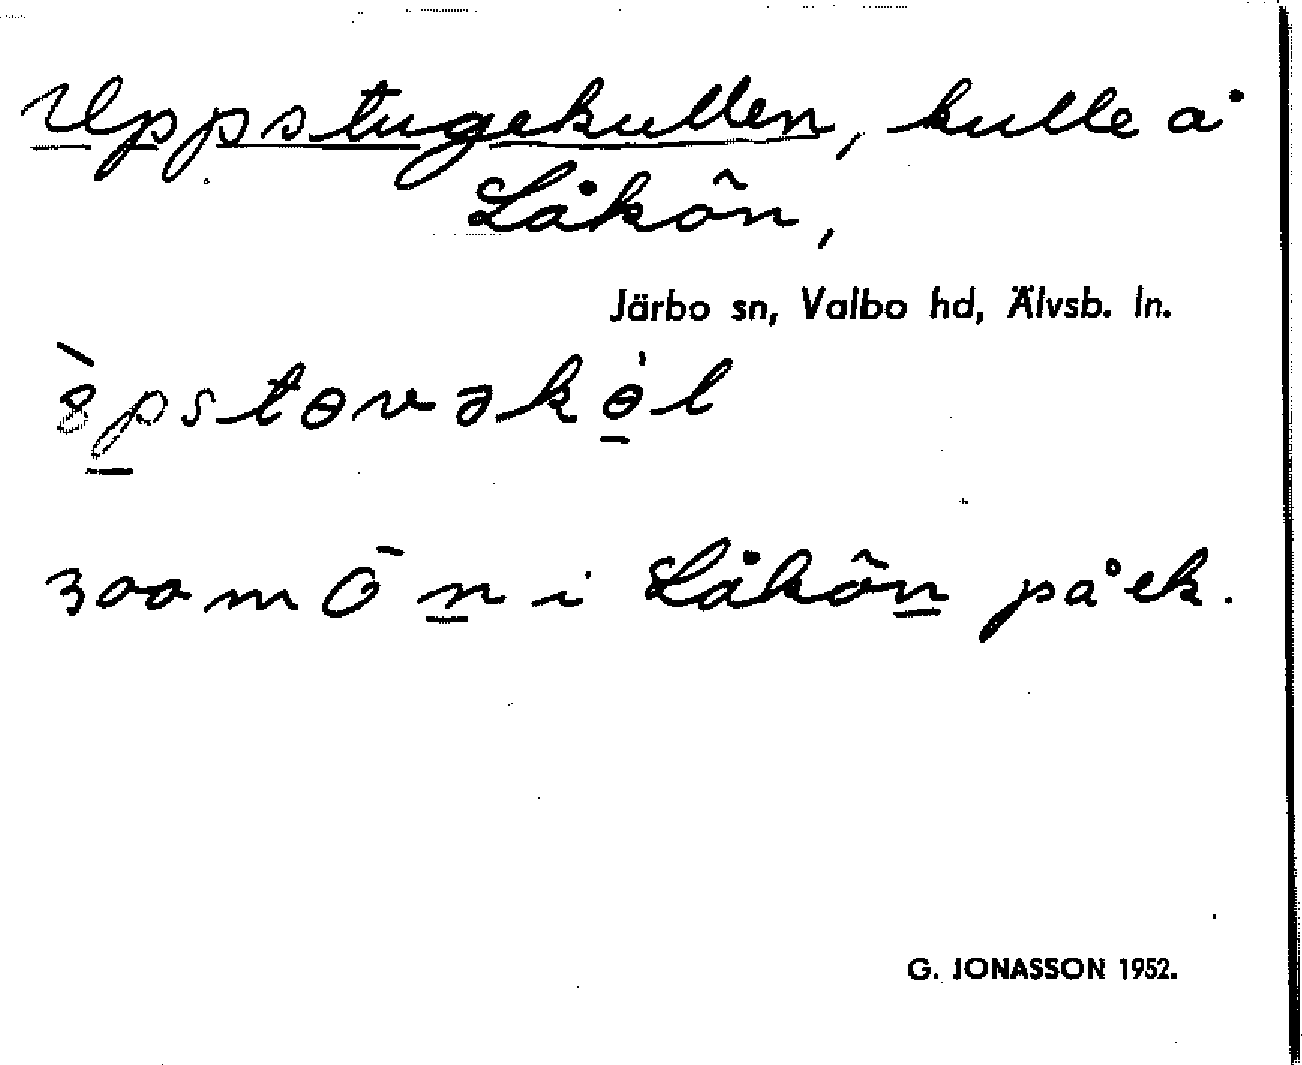 Uppstugekullen, kulle å
Låkön,
Järbo sn, Valbo hd, Älvsb. ln.
300 m Ö n i Låkön på ek.
G. JONASSON 1952.